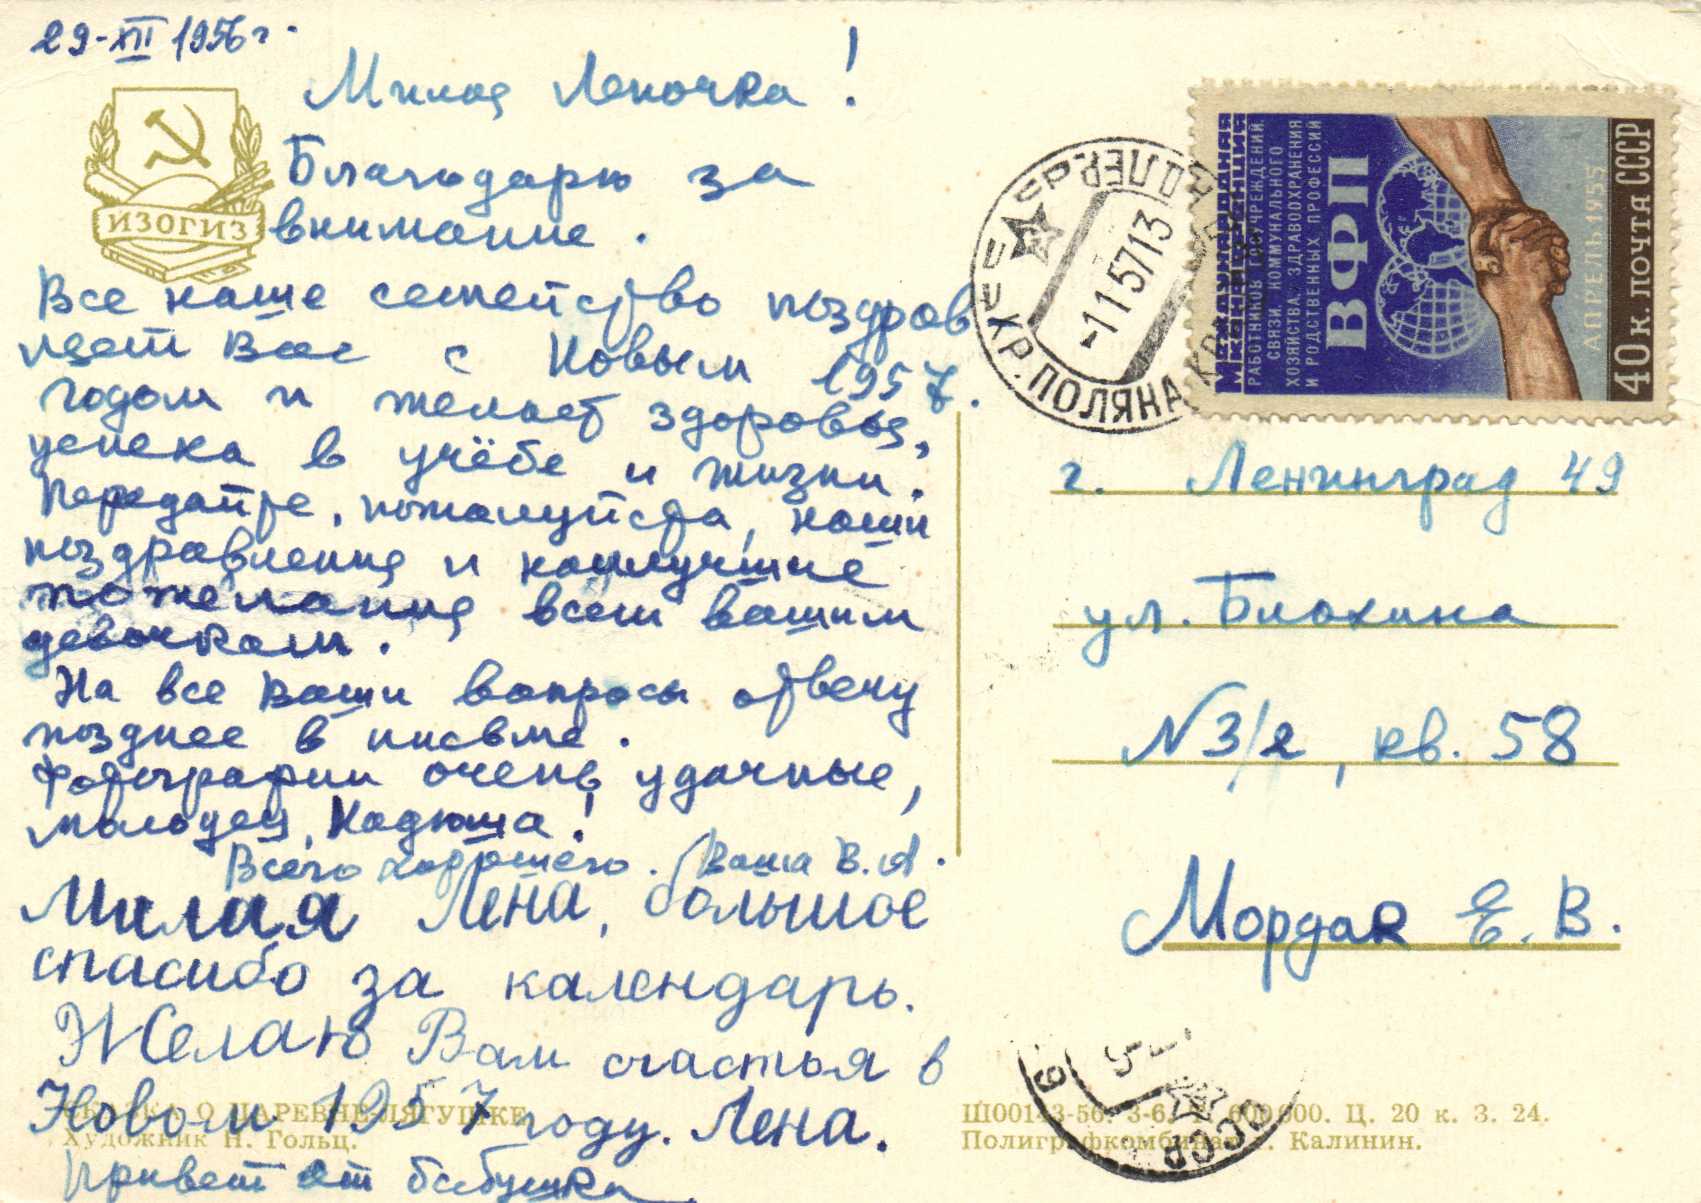 29-XII 1956 г.
Милая Леночка!
Благодарю за
внимание.
ИЗОГИЗ
Все наше семейство поздрав
ляет Вас с Новым 1957.
годом и желает здоровья,
успеха в учёбе и жизни.
Передайте, пожалуйста, наши
поздравления и наилучшие
пожелания всем вашим
девочкам.
На все Ваши вопросы отвечу
позднее в письме.
Фотографии очень удачные,
молодец, Надюша!
Всего хорошего. Ваша В. А.
Милая Лена, большое
спасибо за календарь.
Желаю Вам счастья в
Новом 1957 году. Лена.
Привет от бабушки
О ЦАРЕВНЕ-ЛЯГУШКЕ
Художник Н. Гольц.
МЕЖДУНАРОДНАЯ
РАБОТНИКОВ ГОСУЧРЕЖДЕНИЙ,
СВЯЗИ, КОММУНАЛЬНОГО
ХОЗЯЙСТВА, ЗДРАВООХРАНЕНИЯ
И РОДСТВЕННЫХ ПРОФЕССИЙ
ВФП
АПРЕЛЬ 1955
40 к. ПОЧТА СССР
КР. ПОЛЯНА
-1 1 57 13
г. Ленинград 49
ул. Блохина
№ 3/2, кв. 58
Мордак Е. В.
Ш00143-56. 3-6. 600 000. Ц. 20 к. З. 24.
Полиграфкомбинат г. Калинин.
СССР